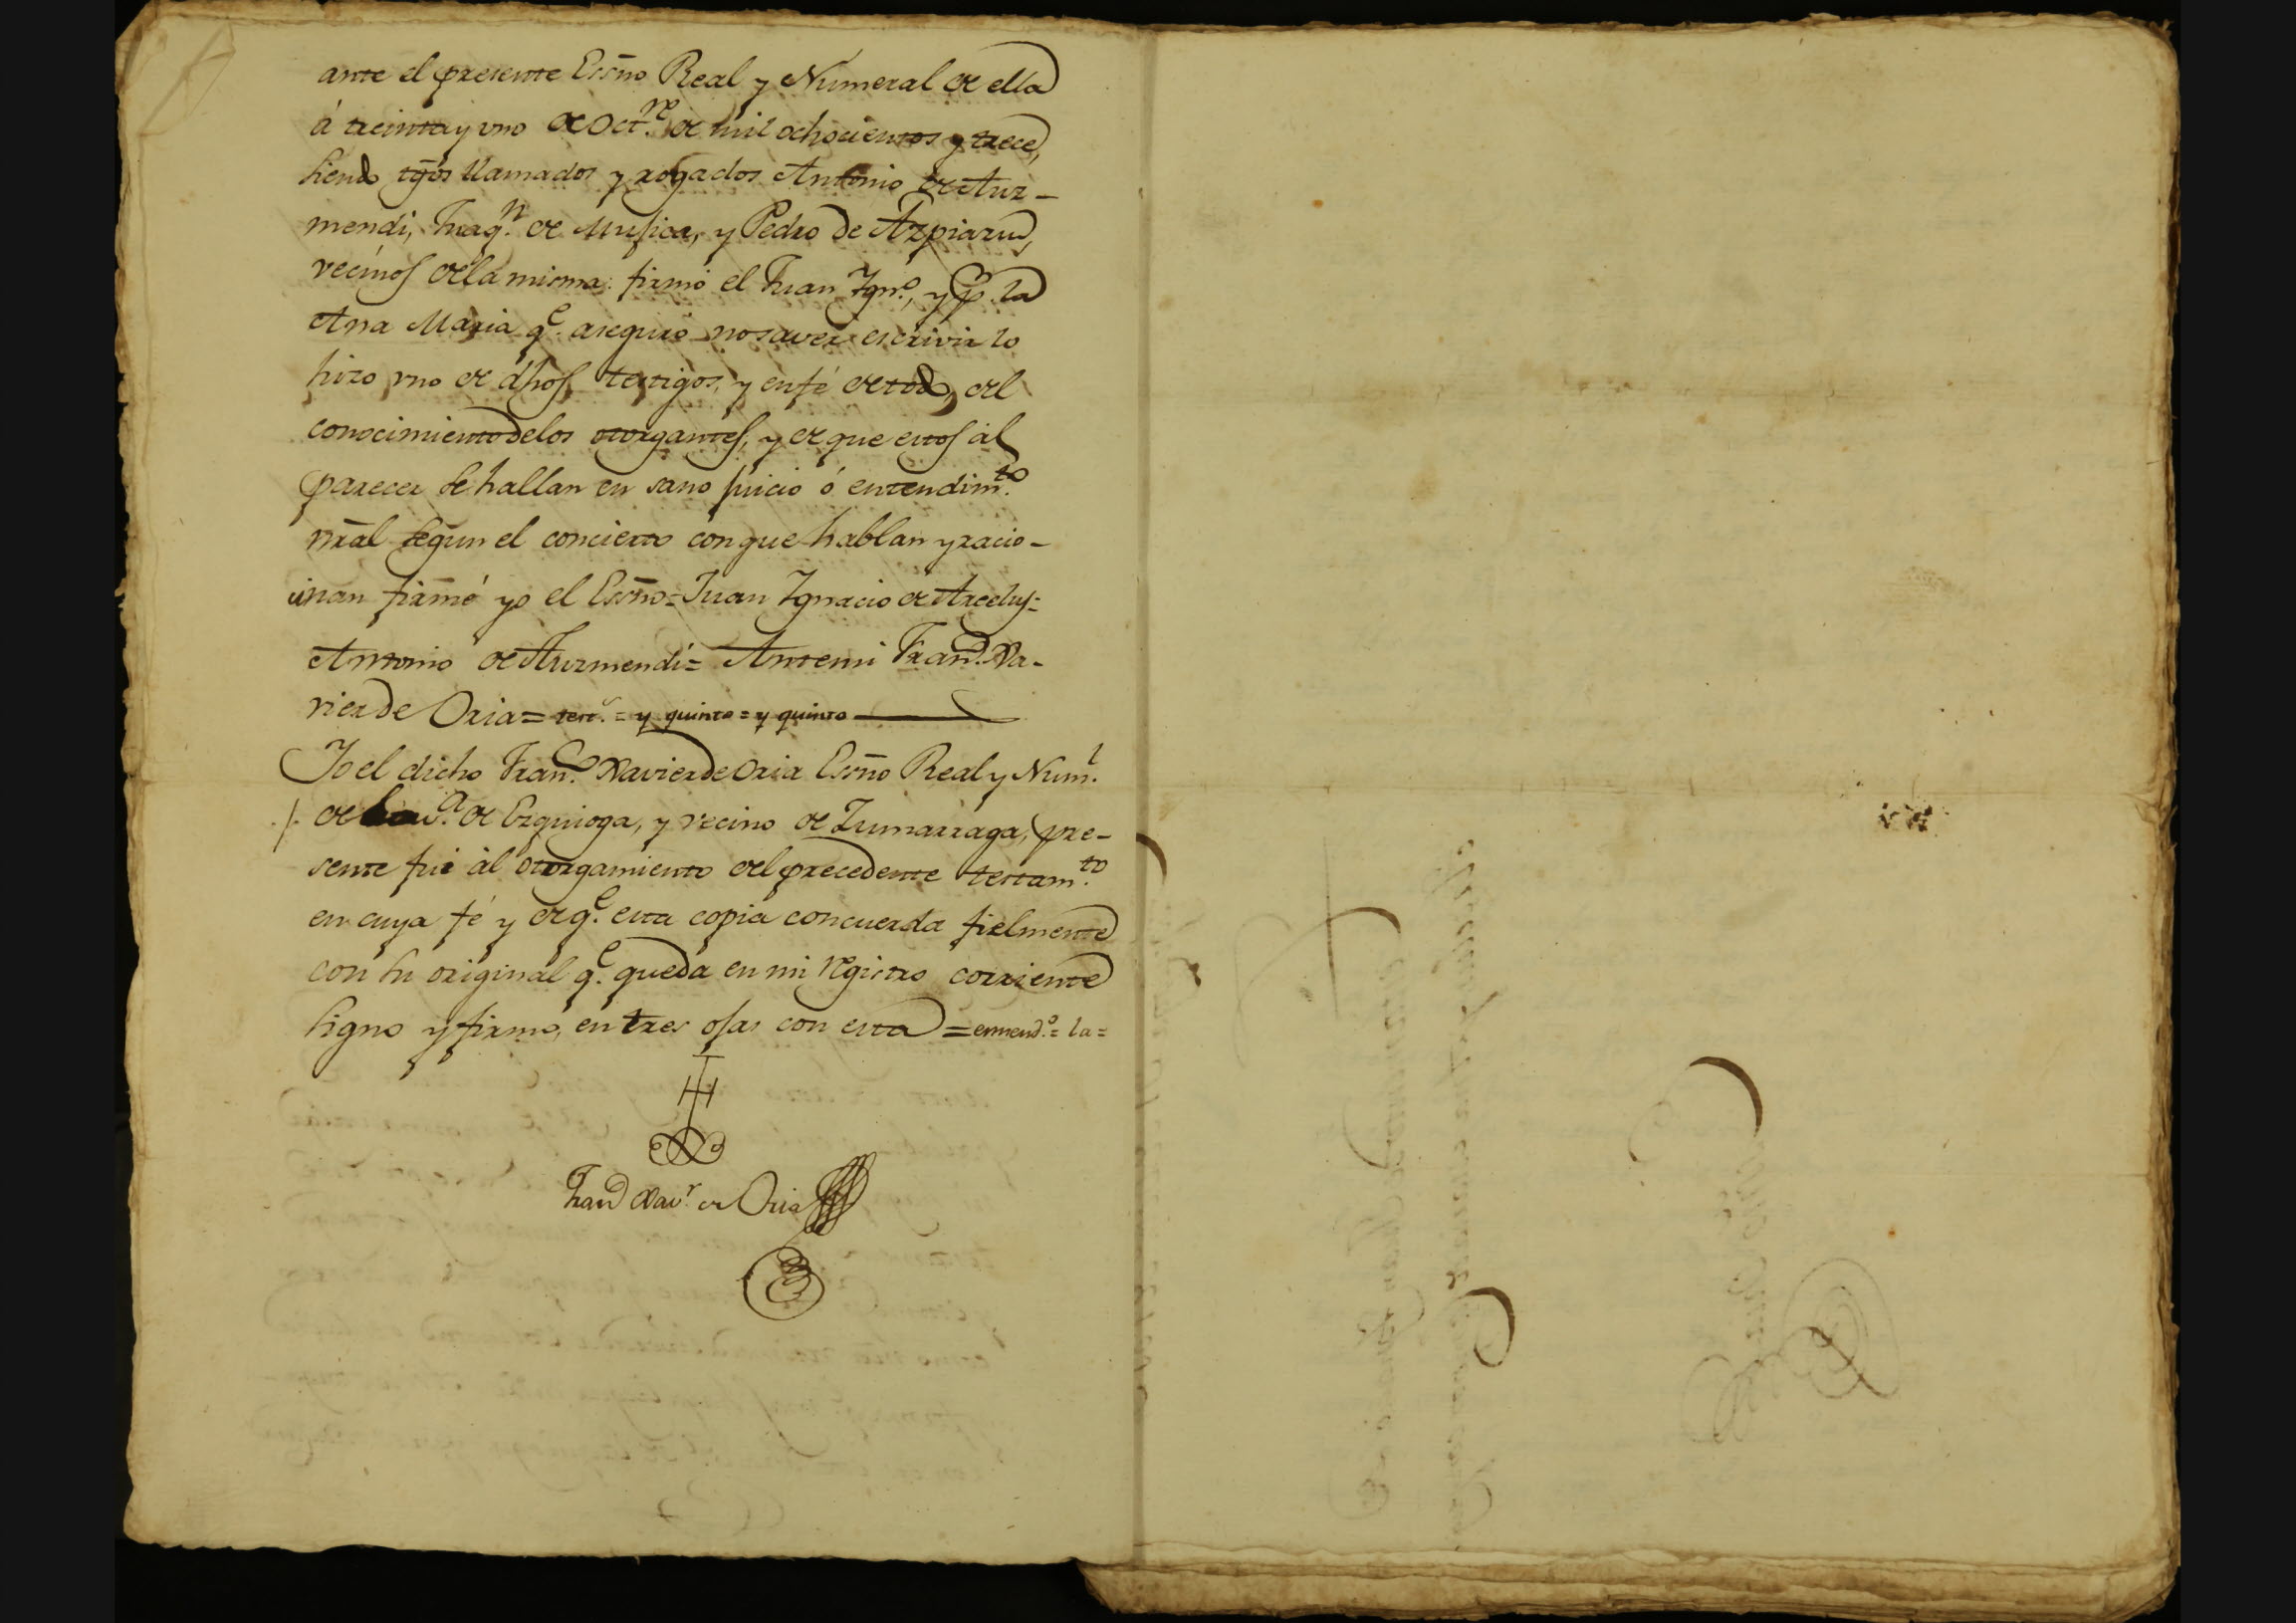 ante el presente Essño Real y Numeral de ella
á treinta y uno de Oct.re de mil ochocientos y trece,
siendo tgõs llamados y rogados Antonio de Auz-
mendi, Juaq.n de Mujica, y Pedro de Azpiazu,
vecinos de la misma: firmó el Juan Ign.o, y p.r la
Ana Maria q.e aseguró no saver escrivir lo
hizo uno de dhos testigos, y en fé de todo, del
conocimiento de los otorgantes, y de que estos al
parecer se hallan en sano juicio ó entendim.to
nr̃al segun el concierto con que hablan y racio-
cinan firmé yo el Essño = Juan Ignacio de Arcelus =
Antonio de Auzmendi = Antemi Fran.co Xa-
vier de Oria = = y quinto = y quinto
Yo el dicho Fran.co Xavier de Oria Essño Real y Num.l
de la v.a de Ezquioga, y vecino de Zumarraga, pre-
sente fui al otorgamiento del precedente testam.to
en cuya fé y de q.e esta copia concuerda fielmente
con su original q.e queda en mi registro corriente
signo y firmo, en tres ojas con esta = enmend.o = la =
Fran.co Xav.r de Oria